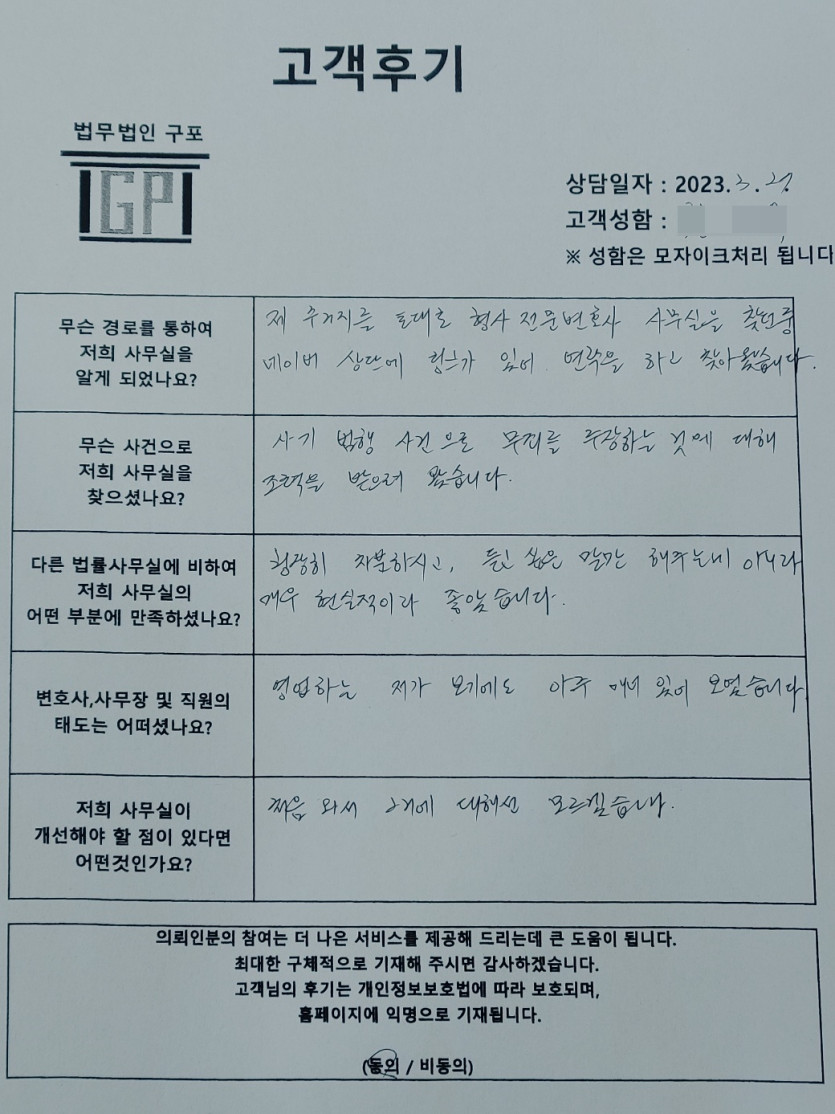 고객후기
법무법인 구포
IGPI
상담일자 : 2023. 3.
고객성함 :
※ 성함은 모자이크처리 됩니다
무슨 경로를 통하여
저희 사무실을
알게 되었나요?
제 주거지를 토대로 형사전문변호사 사무실을 찾던중
네이버 상단에 있어 연락을 하고 찾아왔습니다.
무슨 사건으로
저희 사무실을
찾으셨나요?
사기 범행 사건으로 무죄를 주장하는 것에 대해
조력을 받으러 왔습니다.
다른 법률사무실에 비하여
저희 사무실의
어떤 부분에 만족하셨나요?
굉장히 차분하시고, 듣고 싶은 말만 해주는게 아니라
매우 현실적이라 좋았습니다.
변호사,사무장 및 직원의
태도는 어떠셨나요?
영업하는 저가 보기에도 아주 매너 있어 보였습니다
저희 사무실이
개선해야 할 점이 있다면
어떤것인가요?
처음 와서 그거에 대해선 모르겠습니다.
의뢰인분의 참여는 더 나은 서비스를 제공해 드리는데 큰 도움이 됩니다.
최대한 구체적으로 기재해 주시면 감사하겠습니다.
고객님의 후기는 개인정보보호법에 따라 보호되며,
홈페이지에 익명으로 기재됩니다.
(동의 / 비동의)